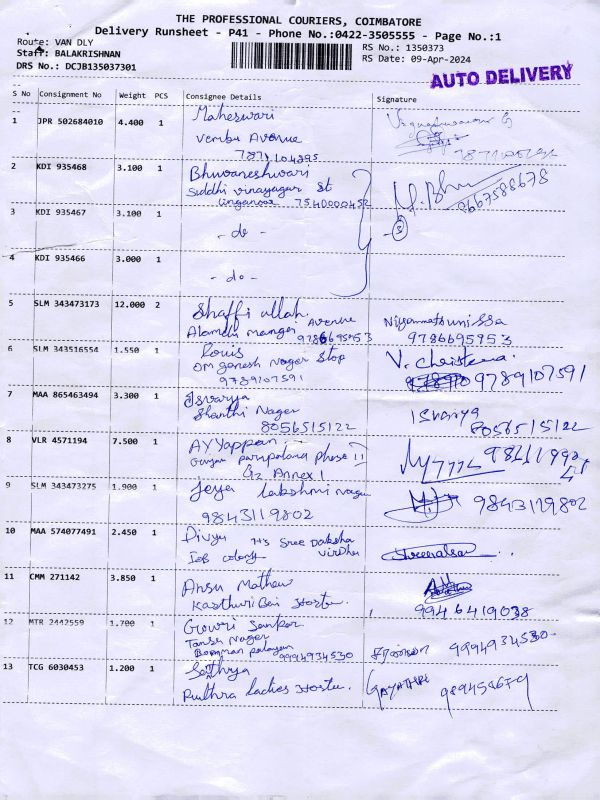 THE PROFESSIONAL COURIERS, COIMBATORE
Delivery Runsheet - P41 - Phone No.:0422-3505555 - Page No.:1
Route: VAN DLY
Staff: BALAKRISHNAN
DRS No.: DCJB135037301
RS No.: 1350373
RS Date: 09-Apr-2024
AUTO DELIVERY
S No Consignment No Weight PCS Consignee Details Signature
1 JPR 502684010 4.400 1 Maheswari
Vembu Avenue
7871104395
2 KDI 935468 3.100 1 Bhuvaneshwari
Siddhi vinayagar St
7540000452
9667588678
3 KDI 935467 3.100 1 - do - - 3
4 KDI 935466 3.000 1 - do -
5 SLM 343473173 12.000 2 Shaffi ullah
Alamelu mangai Avenue
9786695953 9786695953
6 SLM 343516554 1.550 1 Louis V. Christeena.
om ganesh nagar Stop
9789107591 9789107591
7 MAA 865463494 3.300 1 Isvarya Isvarya
Shanthi Nager
8056515122 8056515122
8 VLR 4571194 7.500 1 AYYappan
paripalana phase II
G2 Annex 1
9 SLM 343473275 1.900 1 Jeya lakshmi nagar
9843119802 9843119802
10 MAA 574077491 2.450 1 Divya 7+3 Sree Daksha
IOB colony
11 CMM 271142 3.850 1 Ansu Mathew
Kasthuri Bai 9946419038
12 MTR 2442559 1.700 1 Gowri Sankar
Tansi Nagar
9994934530 9994934530
13 TCG 6030453 1.200 1 Sathya GAYATHRI
Ruthra ladies